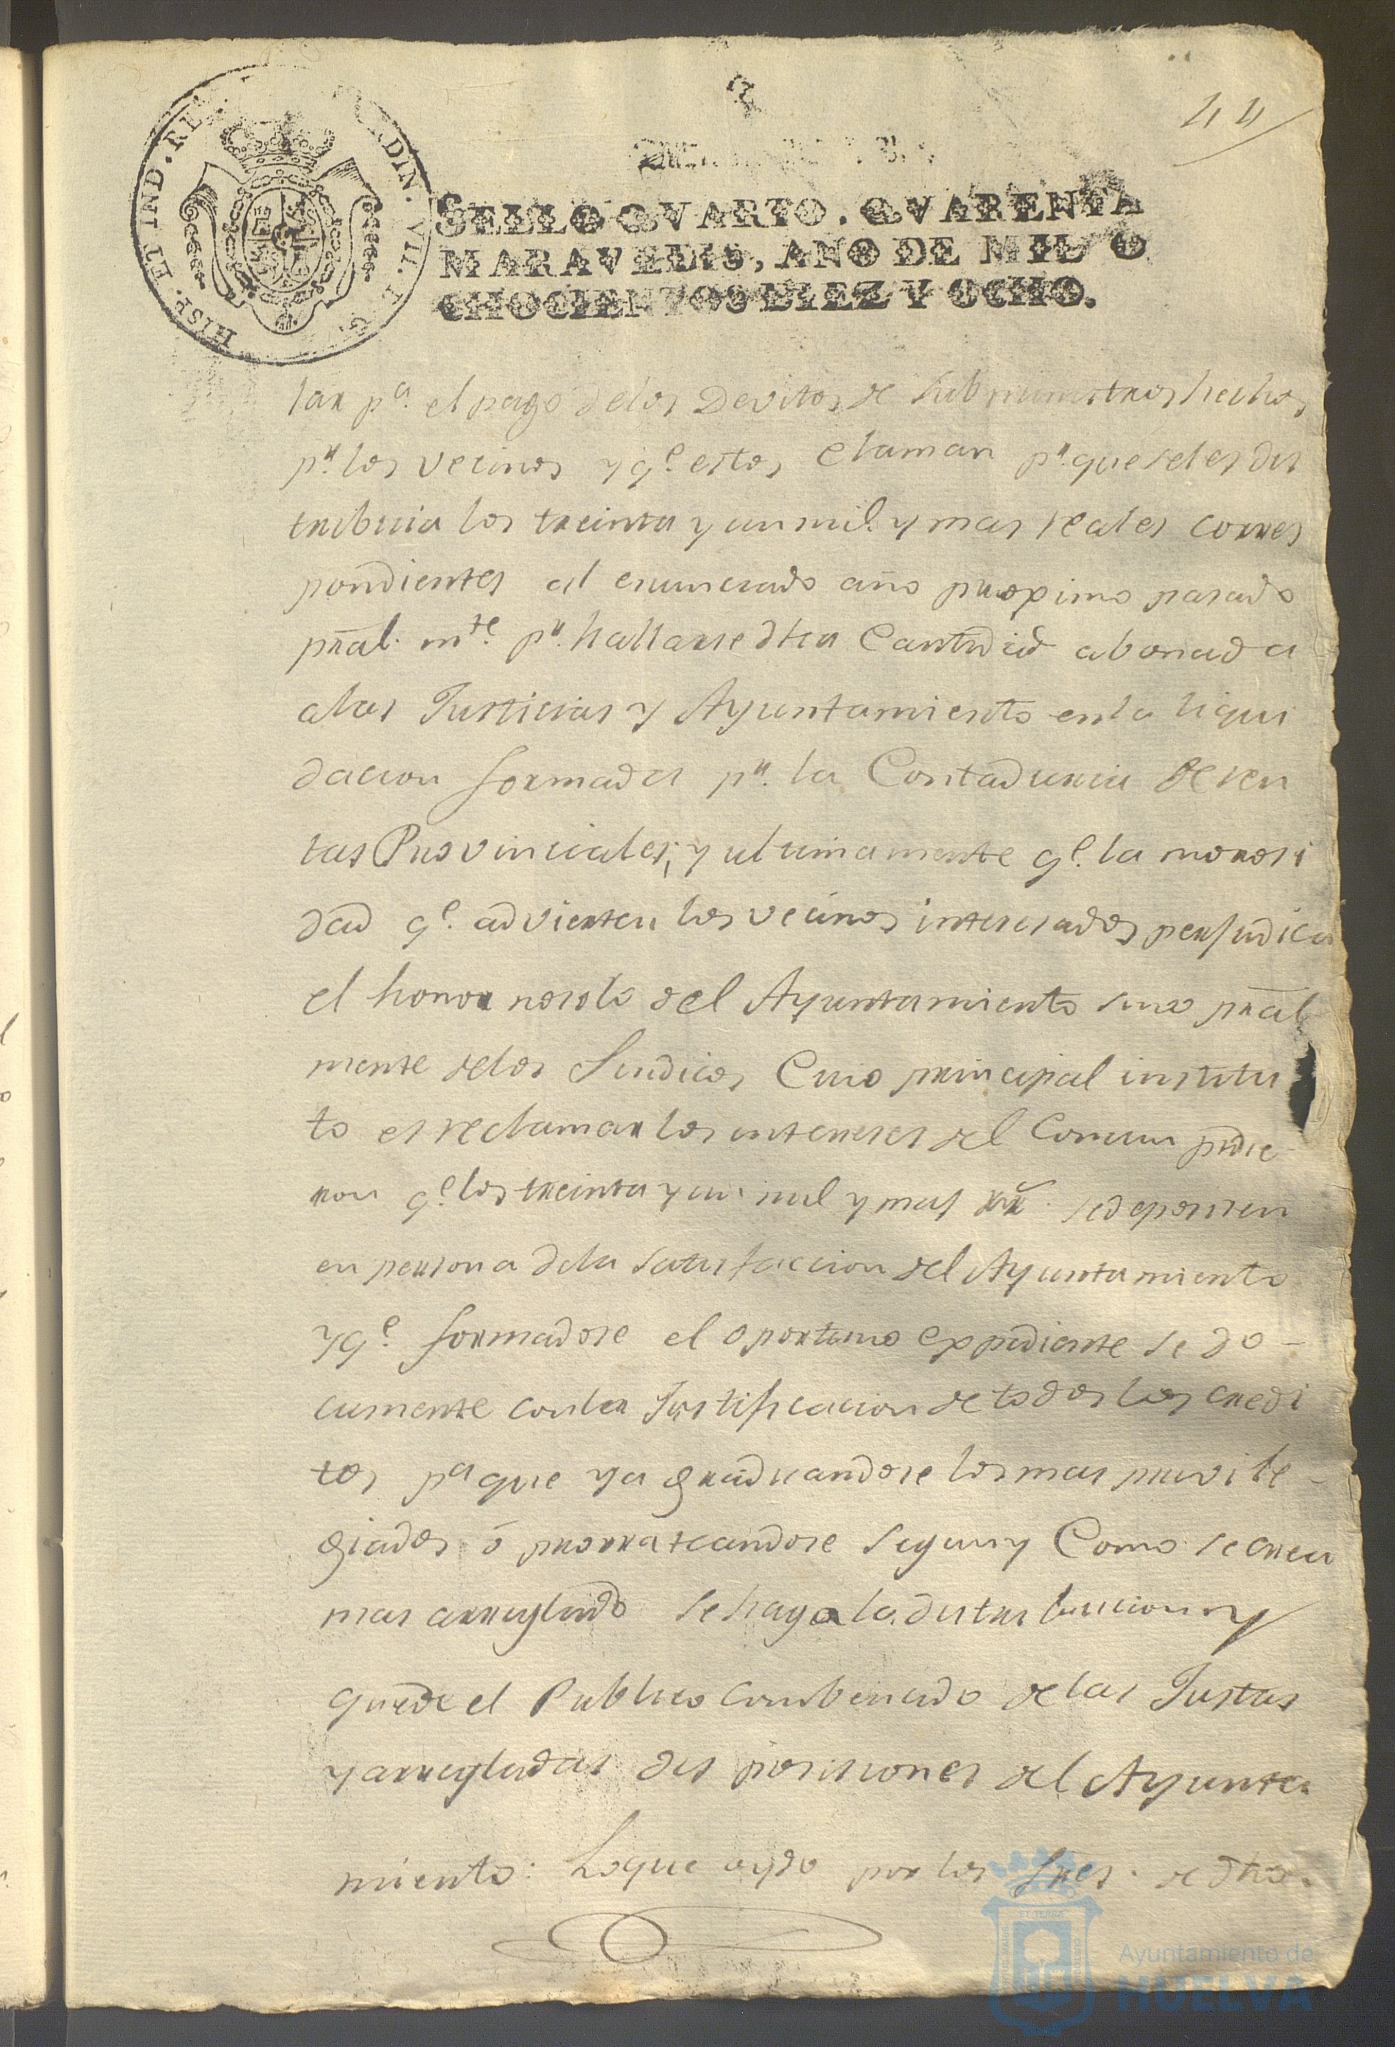 44
HISP. ET IND. RE
RDIN. VII. D. G.
SELLO QVARTO. QVARENTA
MARAVEDIS, AÑO DE MIL O
CHOCIENTOS DIEZ Y OCHO.
tar pa. el pago delos Devitos de subministros hechos
pr. los vecinos y qe. estos Claman pr. que seles dis
tribuia los treinta y un mil y mas reales corres
pondientes al enunciado año proximo pasado
pral. mte. pr. hallarse dha Cantidad abonada
alas Justicias y Ayuntamiento en la liqui
dacion formada pr. la Contaduria de ren
tas Provinciales; y ultimamente qe. la morosi
dad qe. advierten los vecinos interesados perjudica
el honor nosolo del Ayuntamiento sino pral
mente delos Sindicos Cuio principal institu
to es reclamar los intereses del Comun pidie
ron qe. los treinta y un mil y mas rr. se depositen
en persona dela satisfaccion del Ayuntamiento
y qe. formadose el oportuno expediente se do-
cumente conla Justificacion de todos los credi
tos pa que ya graduandose los mas privile-
giados ó prorrateandose segun y Como se crea
mas arreglado se haga la distribucion y
quede el Publico combencido de las Justas
y arregladas dis posiciones del Ayunta
miento: Loque oydo por los Sres. de dho.
Ayuntamiento de
HUELVA